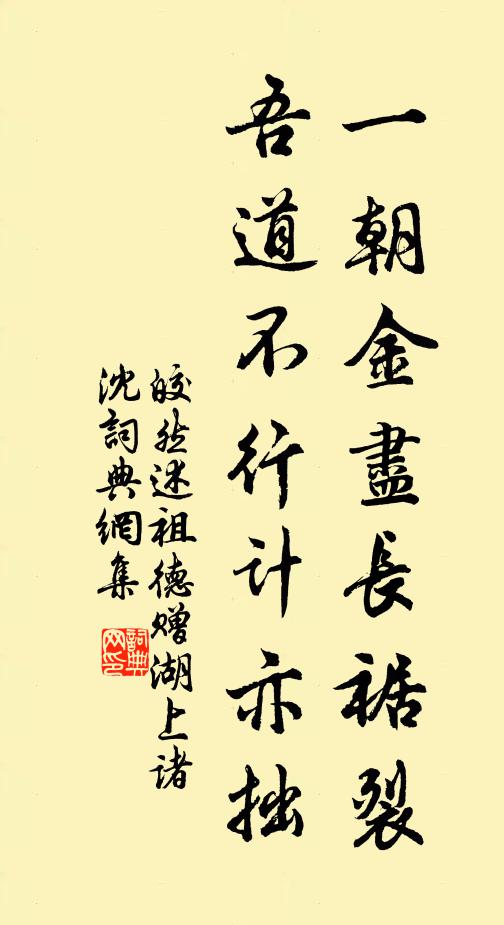 一朝金盡長裾裂
吾道不行計亦拙
皎然述祖德贈湖上諸
沈詞典網集
詞典
网印